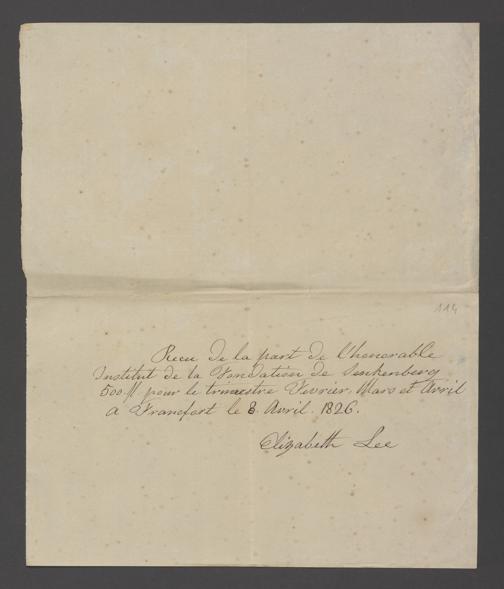 114
Recu de la part de l'honorable
Institut de la Fondation de Senkenberg
500 fl pour le trimestre Fevrier, Mars et Avril
a Francfort le 8. Avril. 1826.
Elizabeth Lee